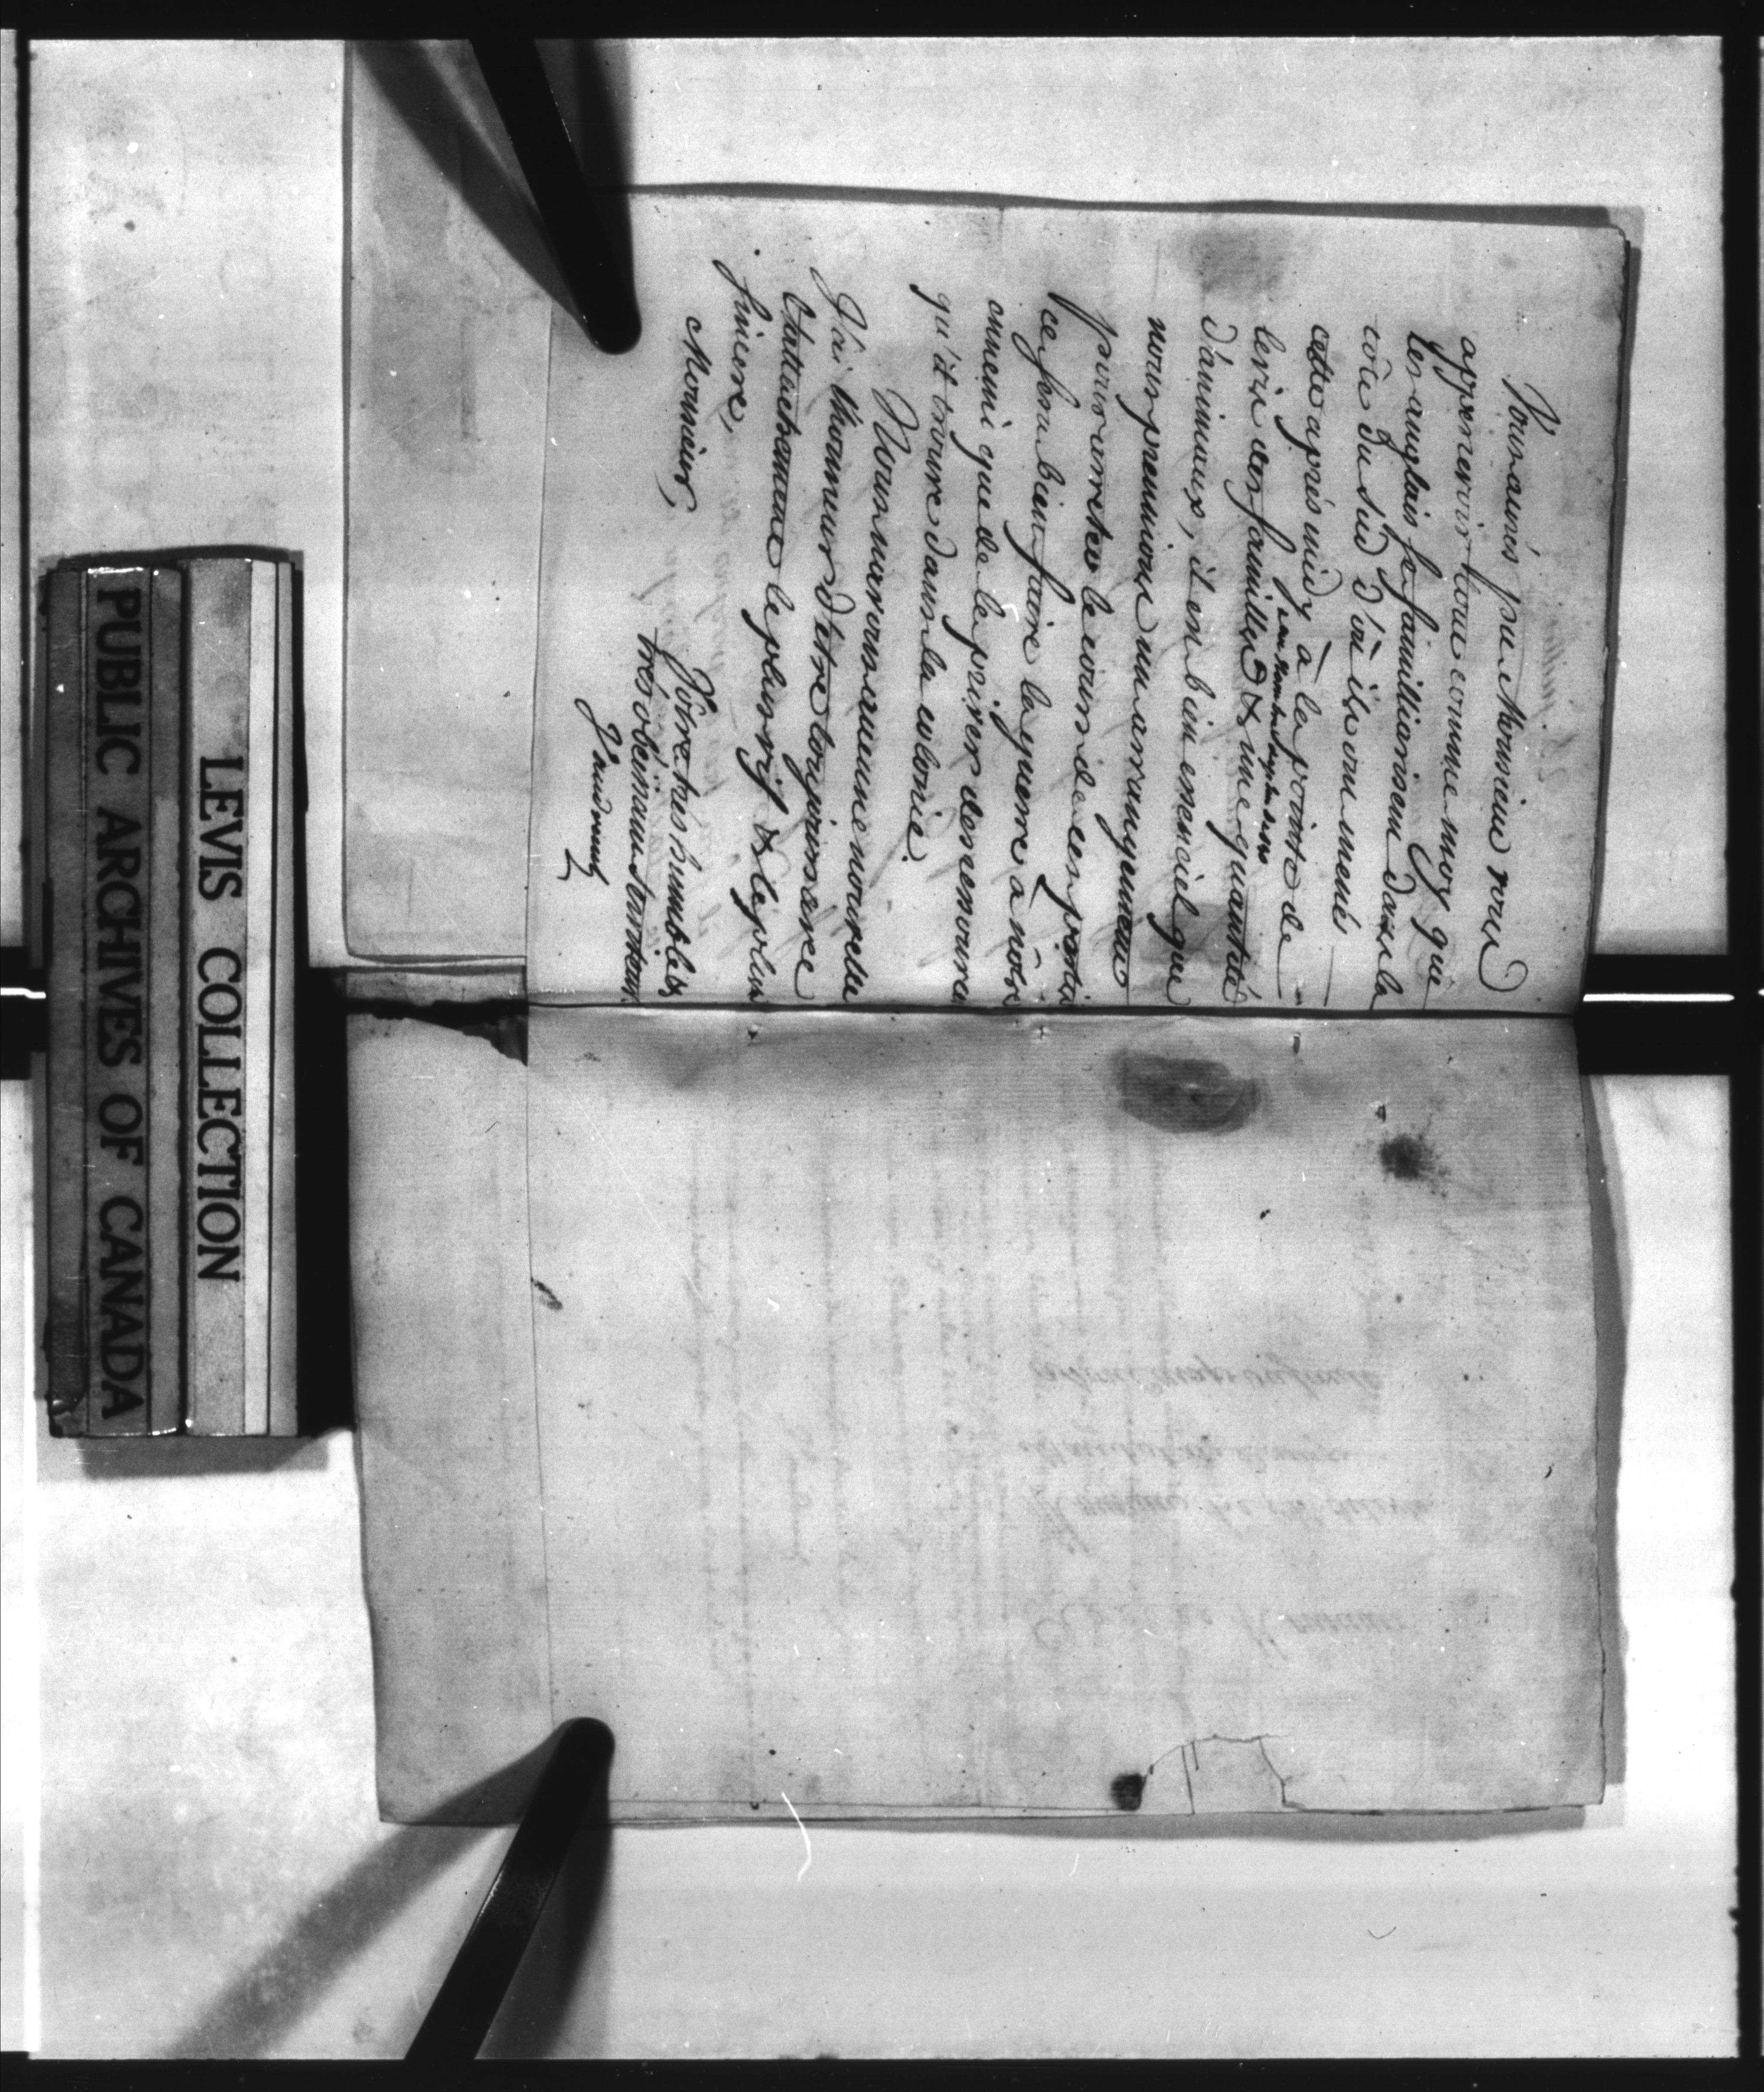 Vous avés pu Monsieur vous
appercevoir tout comme moy que
les anglais se familiarisent dans la
côte du sud d'où ils ont menés
cette après midy à la pointe de
levis des familles & une quantité
un nombre
d'animaux, il est bien essenciel que
nous prenions un arrangement
pour arreter le cours de ces partis
ce sera bien faire la guerre à nôtre
ennemi que de le priver des secours
qu'il trouve dans la colonie.
Nous n'avons aucune nouvelle
J'ai l'honneur d'être toujours avec
l'attachement le plus vif & le plus
sincere,
Monsieur,
Vôtre très humble &
très obéissant serviteur
Vaudreuil
LEVIS COLLECTION
PUBLIC ARCHIVES OF CANADA